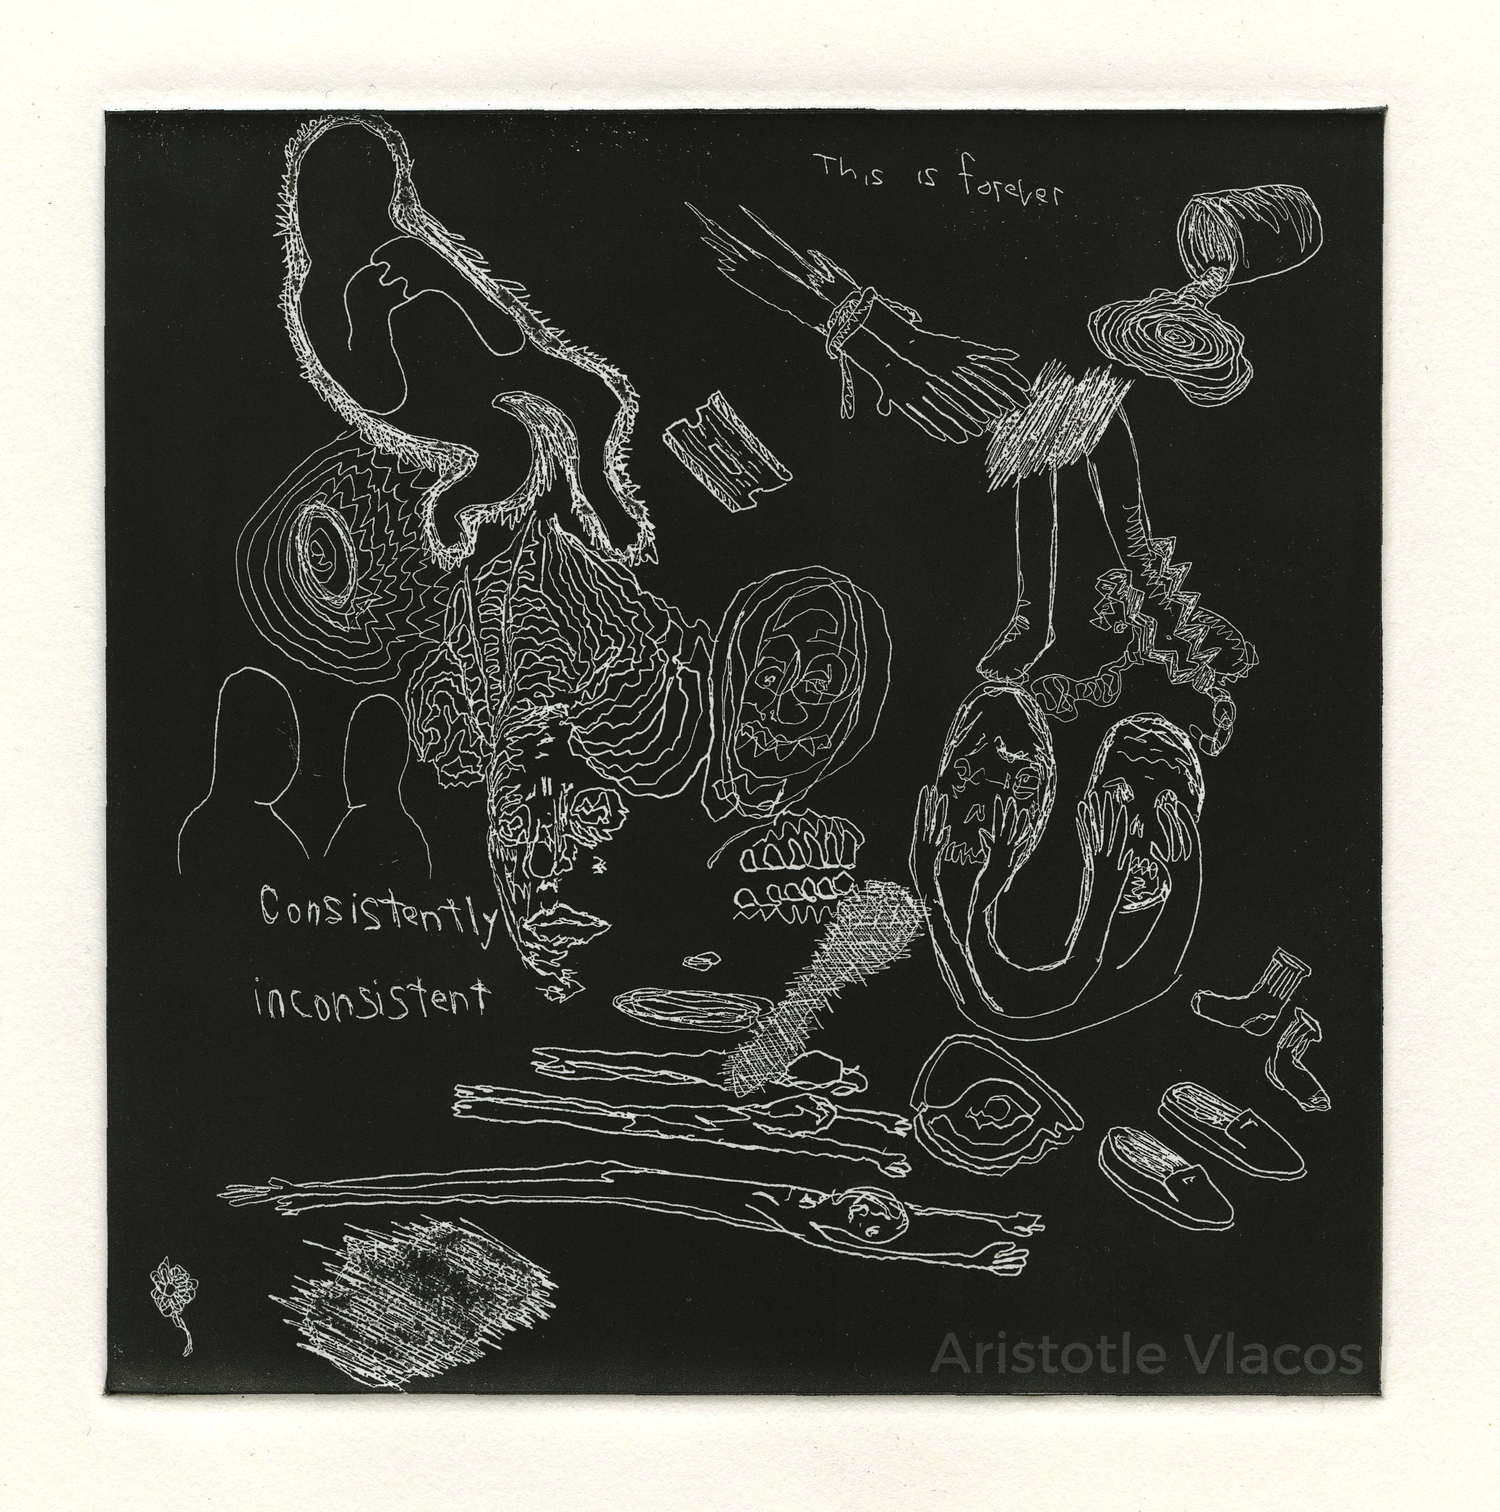 This is forever
Consistently
inconsistent
Aristotle Vlacos